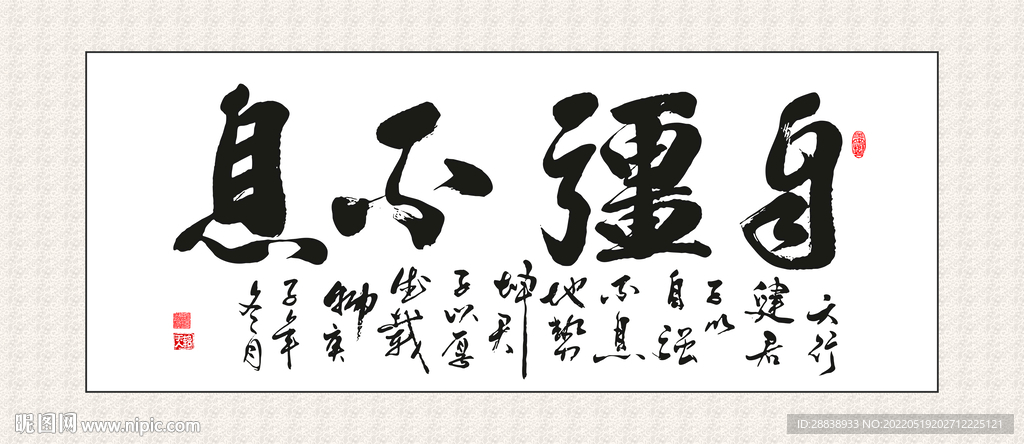 自彊不息
天行
健君
子以
自强
不息
地勢
坤君
子以厚
德載
物庚
子年
冬月
昵图网 www.nipic.com
ID:28838933 NO:20220519202712225121